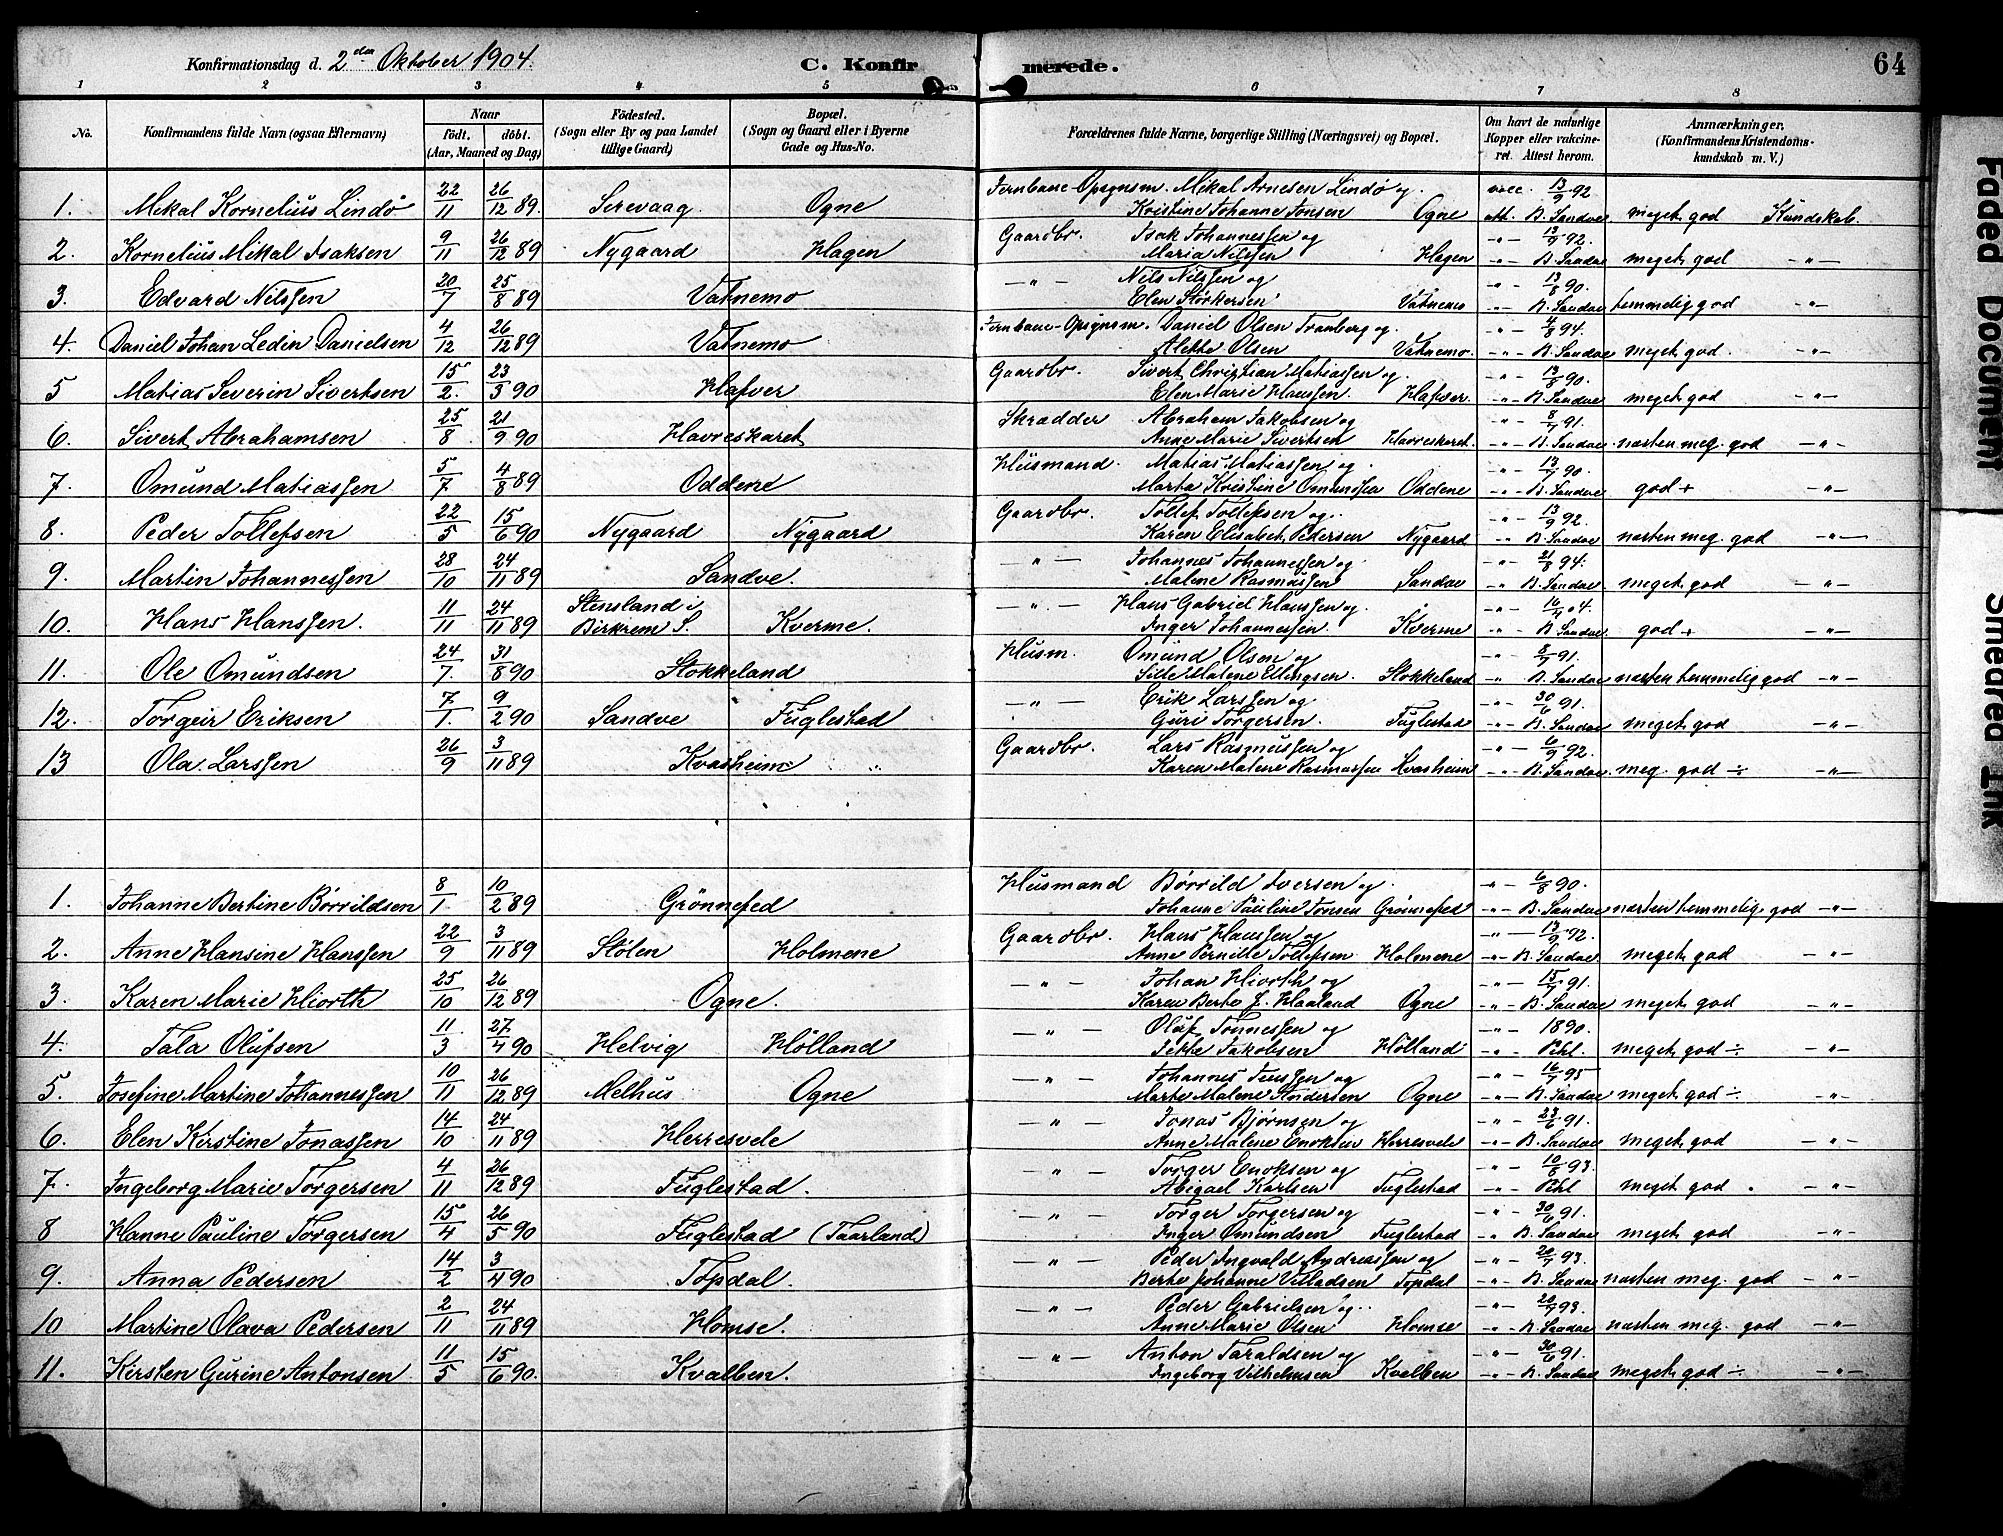 Konfirmationsdag d. 2den Oktober 1904. C. Konfirmerede. 64
1 2 3 4 5 6 7 8
No. Konfirmandens fulde Navn (ogsaa Efternavn) Naar födt. döbt. (Aar, Maaned og Dag) Födested. (Sogn eller By og paa Landet tillige Gaard) Bopæl. (Sogn og Gaard eller i Byerne Gade og Hus-No. Forældrenes fulde Navne, borgerlige Stilling (Næringsvei) og Bopæl. Om havt de naturlige Kopper eller vakcineret. Attest herom. Anmærkninger. (Konfirmandens Kristendomskundskab m. V.)
1. Mikal Kornelius Lindö 22/11 26/12 89. Sirevaag Ogne Jernbane-Opsynsm. Mikal Arnesen Lindö og Kristine Johanne Jonsen Ogne vacc. 13/9 92. att. B. Sandve meget god Kundskab.
2. Kornelius Mikal Isaksen 9/11 26/12 89 Nygaard Hagen Gaardbr. Isak Johannessen og Maria Nilssen Hagen -"- 13/9 92. -"- B. Sandve meget god -"-
3. Edvard Nilssen 20/7 25/8 89 Vatnemo -"- Nils Nilssen og Elen Störkersen Vatnemo -"- 13/8 90. -"- B. Sandve temmelig god -"-
4. Daniel Johan Ledin Danielsen 4/12 26/12 89 Vatnemo Jernbane-Opsynsm. Daniel Olsen Tranberg og Alette Olsen Vatnemo. -"- 4/8 94. -"- B. Sandve meget god. -"-
5 Matias Severin Sivertsen 15/2. 23/3 90 Hafver Gaardbr. Sivert Christian Matiassen og Elen Marie Hanssen Hafver. -"- 13/8 90. -"- B. Sandve meget god -"-
6. Sivert Abrahamsen 25/8 21/9 90 Havreskaret Skrædder Abraham Jakobsen og Anne Marie Sivertsen Havreskaret. -"- 8/7 91. -"- B. Sandve. næsten meg. god -"-
7. Omund Matiassen 5/7 4/8 89 Oddene Husmand. Matias Matiassen og Marta Kristine Omundsen Oddene -"- 13/7 90. -"- B. Sandve god + -"-
8. Peder Tollefsen 22/5 15/6 90 Nygaard Nygaard Gaardbr. Tollef Tollefsen og Karen Elisabet Pedersen Nygaard -"- 13/9 92. -"- B. Sandve næsten meg. god -"-
9. Martin Johannessen 28/10 24/11 89 Sandve. -"- Johannes Johannessen og Malene Rasmussen Sandve -"- 21/8 94. -"- B. Sandve meget god -"-
10. Hans Hanssen. 11/11 24/11 89 Stensland i Birkrem S. Kverme. -"- Hans Gabriel Hanssen og Inger Johannessen. Kverme -"- 16/9 04. -"- B. Sandve god + -"-
11. Ole Omundsen 24/7. 31/8 90 Stokkeland Husm. Omund Olsen og Sille Malene Ellingsen. Stokkeland -"- 8/7 91. -"- B. Sandve næsten temmelig god -"-
12. Torgeir Eriksen 7/1. 9/2 90 Sandve Fuglestad -"- Erik Larssen og Guri Torgersen. Fuglestad -"- 30/6 91. -"- B. Sandve meget god -"-
13 Ola Larssen 26/9 3/11 89 Kvasheim Gaardbr. Lars Rasmussen og Karen Malene Rasmussen Kvasheim -"- 6/9 92. -"- B. Sandve. meg. god ÷ -"-
1. Johanne Bertine Börrildsen 8/1 10/2 89 Grönnefed Husmand Börrild Iversen og Johanne Pauline Jonsen Grönnefed -"- 6/8 90. -"- B. Sandve næsten temmelig god -"-
2. Anne Hansine Hanssen 22/9 3/11 89 Stölen Holmene Gaardbr. Hans Hanssen og Anne Pernille Tollefsen Holmene -"- 13/9 92. -"- B. Sandve. meget god -"-
3. Karen Marie Hiorth 25/10 26/12 89 Ogne. -"- Johan Hiorth og Karen Berte J. Haaland Ogne -"- 15/7 91. -"- B. Sandve meget god -"-
4. Tala Olufsen 11/3 27/4 90 Helvig Hölland -"- Oluf Tonnessen og Jekte Jakobsen Hölland -"- 1890. -"- Pihl. meget god ÷ -"-
5. Josefine Martine Johannessen 10/11 26/12 89 Melhus Ogne -"- Johannes Jenssen og Marte Malene Andersen Ogne -"- 16/7 95 -"- B. Sandve meget god ÷ -"-
6. Elen Kirstine Jonassen 14/10 24/11 89 Herresvele -"- Jonas Björnsen og Anne Malene Enoksen Herresvele -"- 23/6 91. -"- B. Sandve meget god -"-
7. Ingeborg Marie Torgersen 4/11 26/12 89 Fuglestad. -"- Torger Enoksen og Abigael Karlsen Fuglestad -"- 10/8 93. -"- Pihl meget god. -"-
8 Hanne Pauline Torgersen 15/4 26/5 90 Fuglestad (Taarland) -"- Torger Torgersen og Inger Omundsen Fuglestad -"- 30/6 91. -"- B. Sandve meget god -"-
9. Anna Pedersen 14/2 3/4 90 Topdal. -"- Peder Ingvald Andreassen og Berte Johanne Villadsen Topdal -"- 20/7 93. -"- B. Sandve næsten meg. god -"-
10 Martine Olava Pedersen 2/11 24/11 89 Homse. -"- Peder Gabrielsen og Anne Marie Olsen Homse -"- 20/7 93. -"- B. Sandve næsten meg. god -"-
11. Kirsten Gurine Antonsen 11/5 15/6 90. Kvalben. -"- Anton Taraldsen og Ingeborg Vilhelmsen Kvalben -"- 30/6 91. -"- B. Sandve meget god ÷ -"-
Faded Document
Smeared Ink